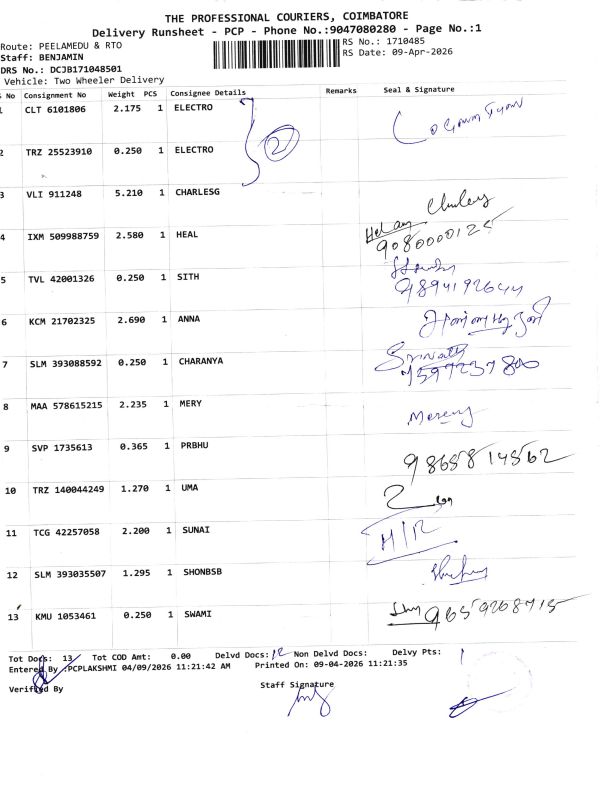 THE PROFESSIONAL COURIERS, COIMBATORE
Delivery Runsheet - PCP - Phone No.:9047080280 - Page No.:1
Route: PEELAMEDU & RTO
RS No.: 1710485
Staff: BENJAMIN
RS Date: 09-Apr-2026
DRS No.: DCJB171048501
Vehicle: Two Wheeler Delivery
No Consignment No Weight PCS Consignee Details Remarks Seal & Signature
1 CLT 6101806 2.175 1 ELECTRO
2
2 TRZ 25523910 0.250 1 ELECTRO
3 VLI 911248 5.210 1 CHARLESG
4 IXM 509988759 2.580 1 HEAL
9080000125
5 TVL 42001326 0.250 1 SITH
6 KCM 21702325 2.690 1 ANNA
7 SLM 393088592 0.250 1 CHARANYA
8 MAA 578615215 2.235 1 MERY
9 SVP 1735613 0.365 1 PRBHU
9865814562
10 TRZ 140044249 1.270 1 UMA
11 TCG 42257058 2.200 1 SUNAI
H/R
12 SLM 393035507 1.295 1 SHONBSB
13 KMU 1053461 0.250 1 SWAMI
Tot Docs: 13 Tot COD Amt: 0.00 Delvd Docs: 12 Non Delvd Docs: 1 Delvy Pts:
Entered By :PCPLAKSHMI 04/09/2026 11:21:42 AM Printed On: 09-04-2026 11:21:35
Verified By
Staff Signature